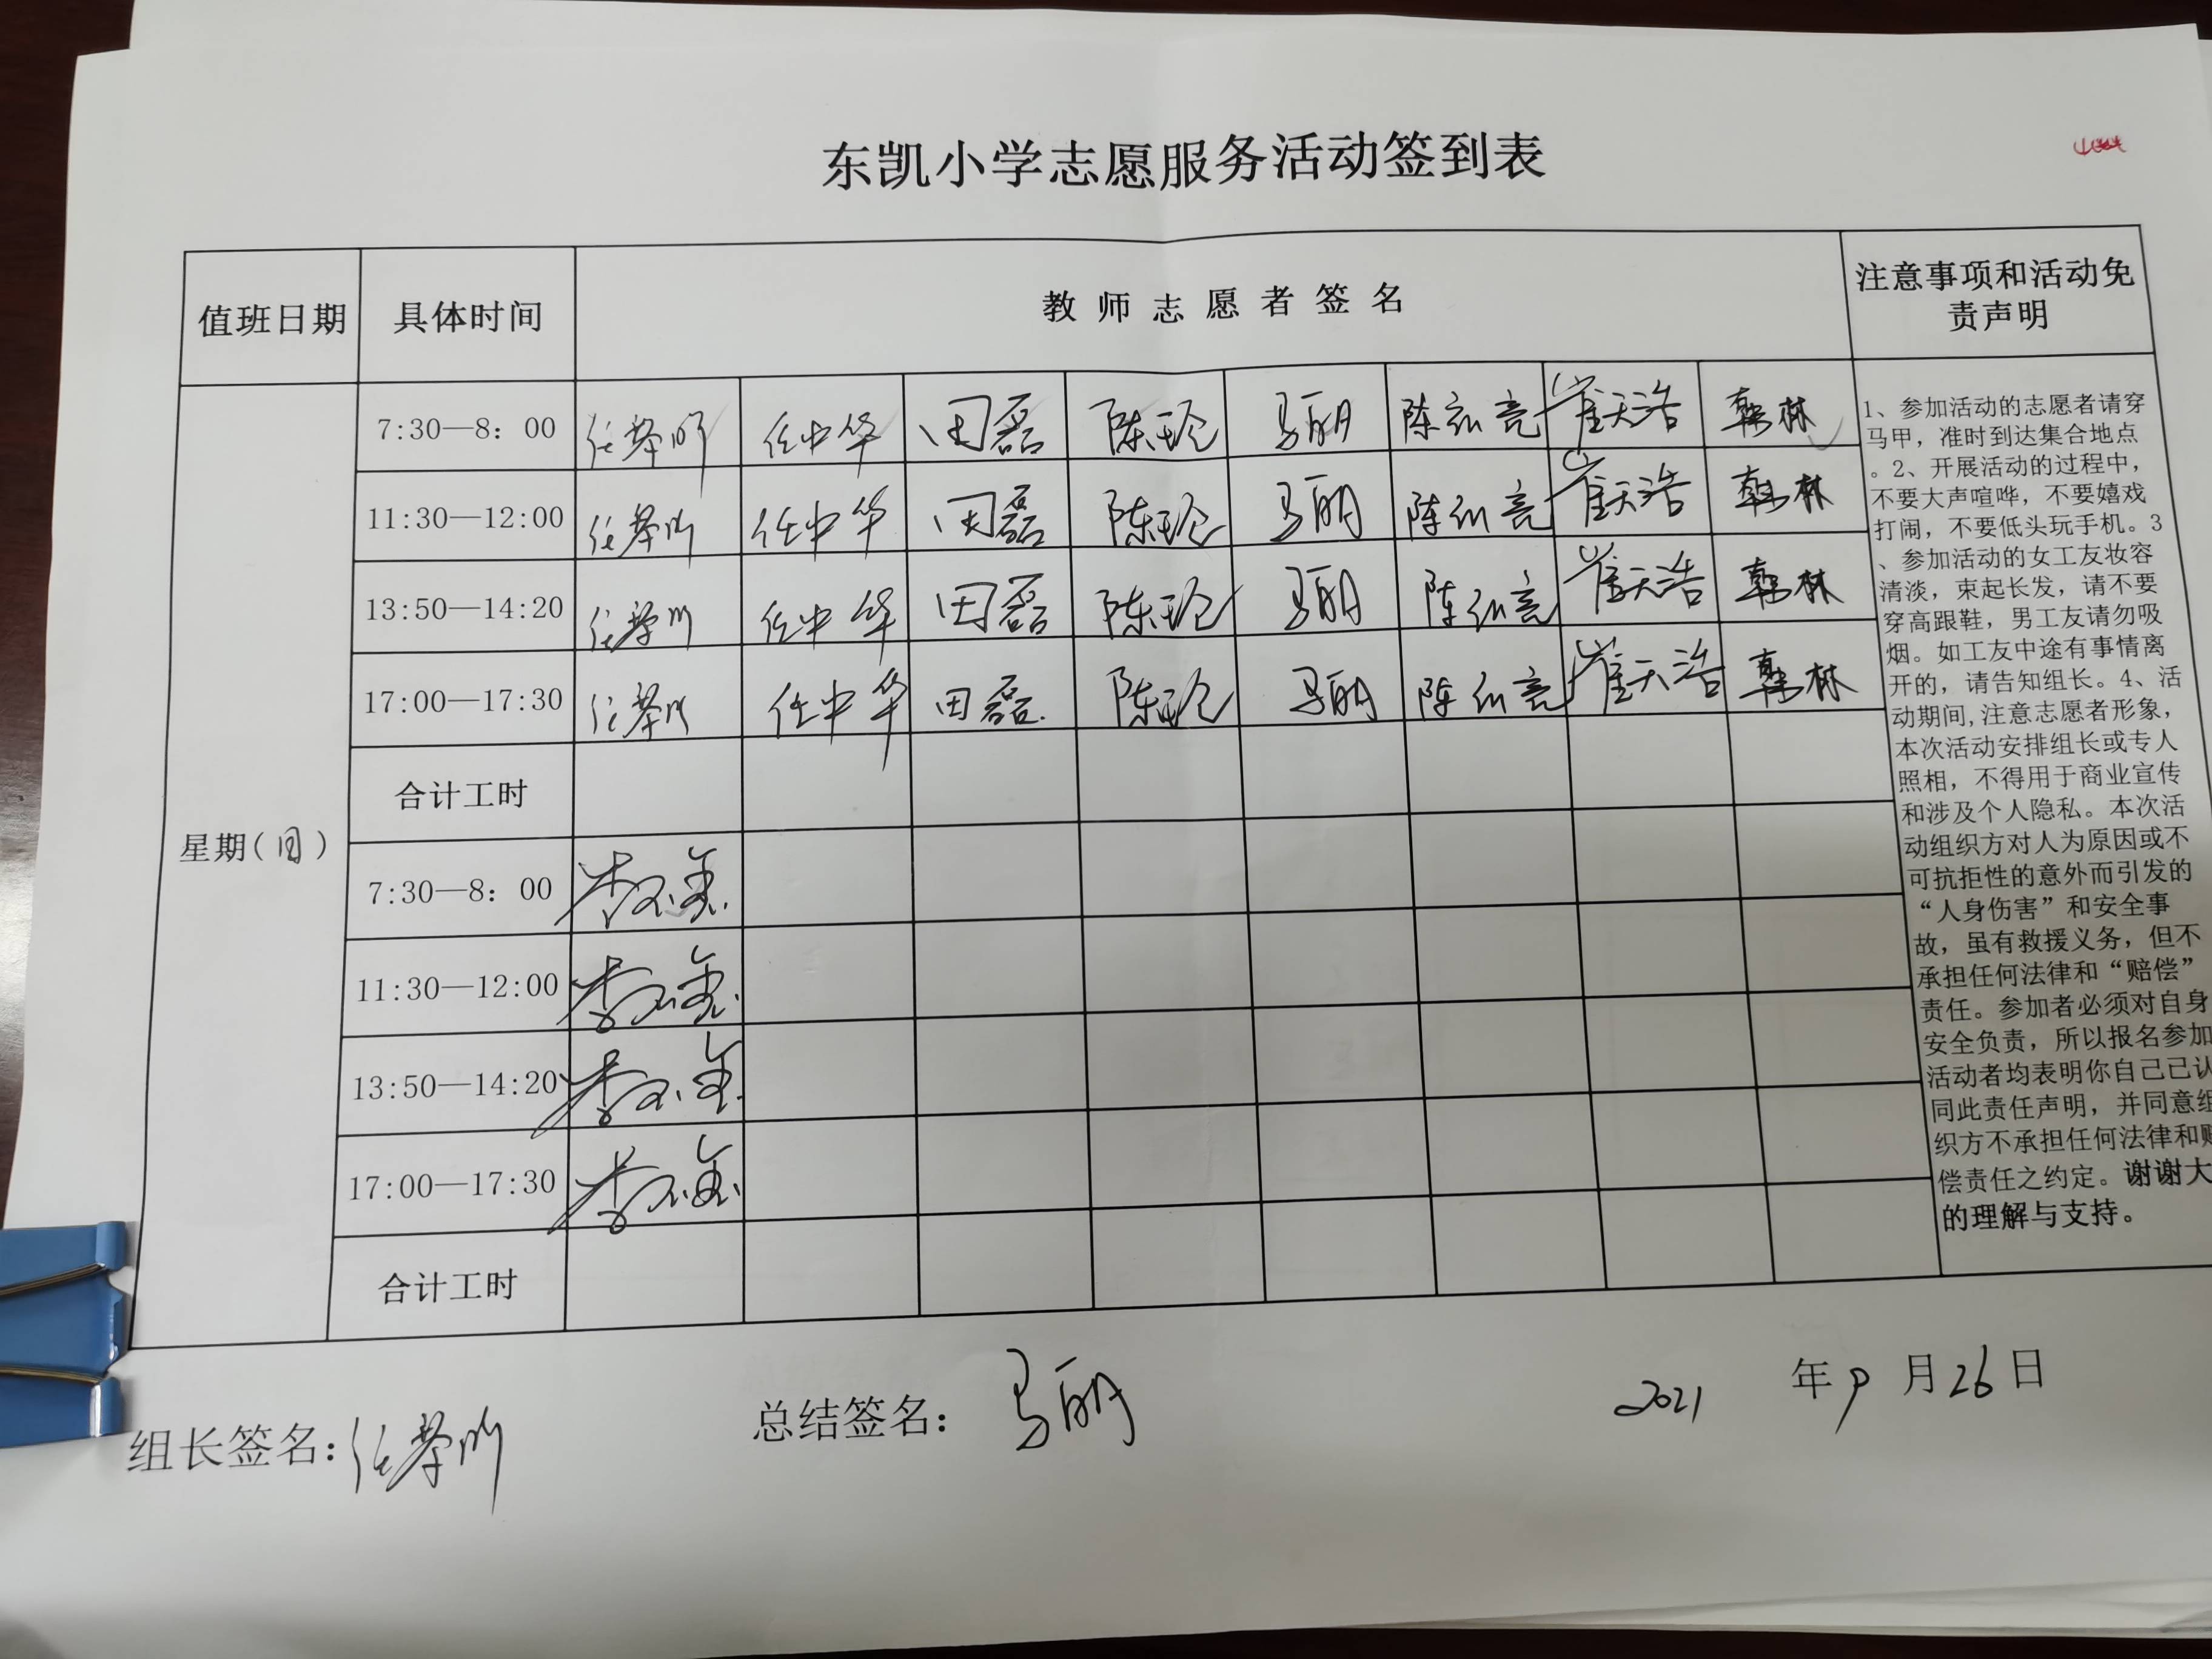 东凯小学志愿服务活动签到表
值班日期 具体时间 教师志愿者签名 注意事项和活动免
责声明
7:30—8：00 任中华 田磊 陈玲 马丽 崔天浩 韩林
11:30—12:00 任中华 田磊 陈玲 马丽 崔天浩 韩林
13:50—14:20 任中华 田磊 陈玲 马丽 崔天浩 韩林
17:00—17:30 任中华 田磊 陈玲 马丽 崔天浩 韩林
合计工时
星期(日)
7:30—8：00
11:30—12:00
13:50—14:20
17:00—17:30
合计工时
1、参加活动的志愿者请穿
马甲，准时到达集合地点
。2、开展活动的过程中，
不要大声喧哗，不要嬉戏
打闹，不要低头玩手机。3
、参加活动的女工友妆容
清淡，束起长发，请不要
穿高跟鞋，男工友请勿吸
烟。如工友中途有事情离
开的，请告知组长。4、活
动期间,注意志愿者形象，
本次活动安排组长或专人
照相，不得用于商业宣传
和涉及个人隐私。本次活
动组织方对人为原因或不
可抗拒性的意外而引发的
“人身伤害”和安全事
故，虽有救援义务，但不
承担任何法律和“赔偿”
责任。参加者必须对自身
安全负责，所以报名参加
活动者均表明你自己已认
同此责任声明，并同意组
织方不承担任何法律和赔
偿责任之约定。谢谢大
的理解与支持。
组长签名： 总结签名：马丽 2021年9月26日